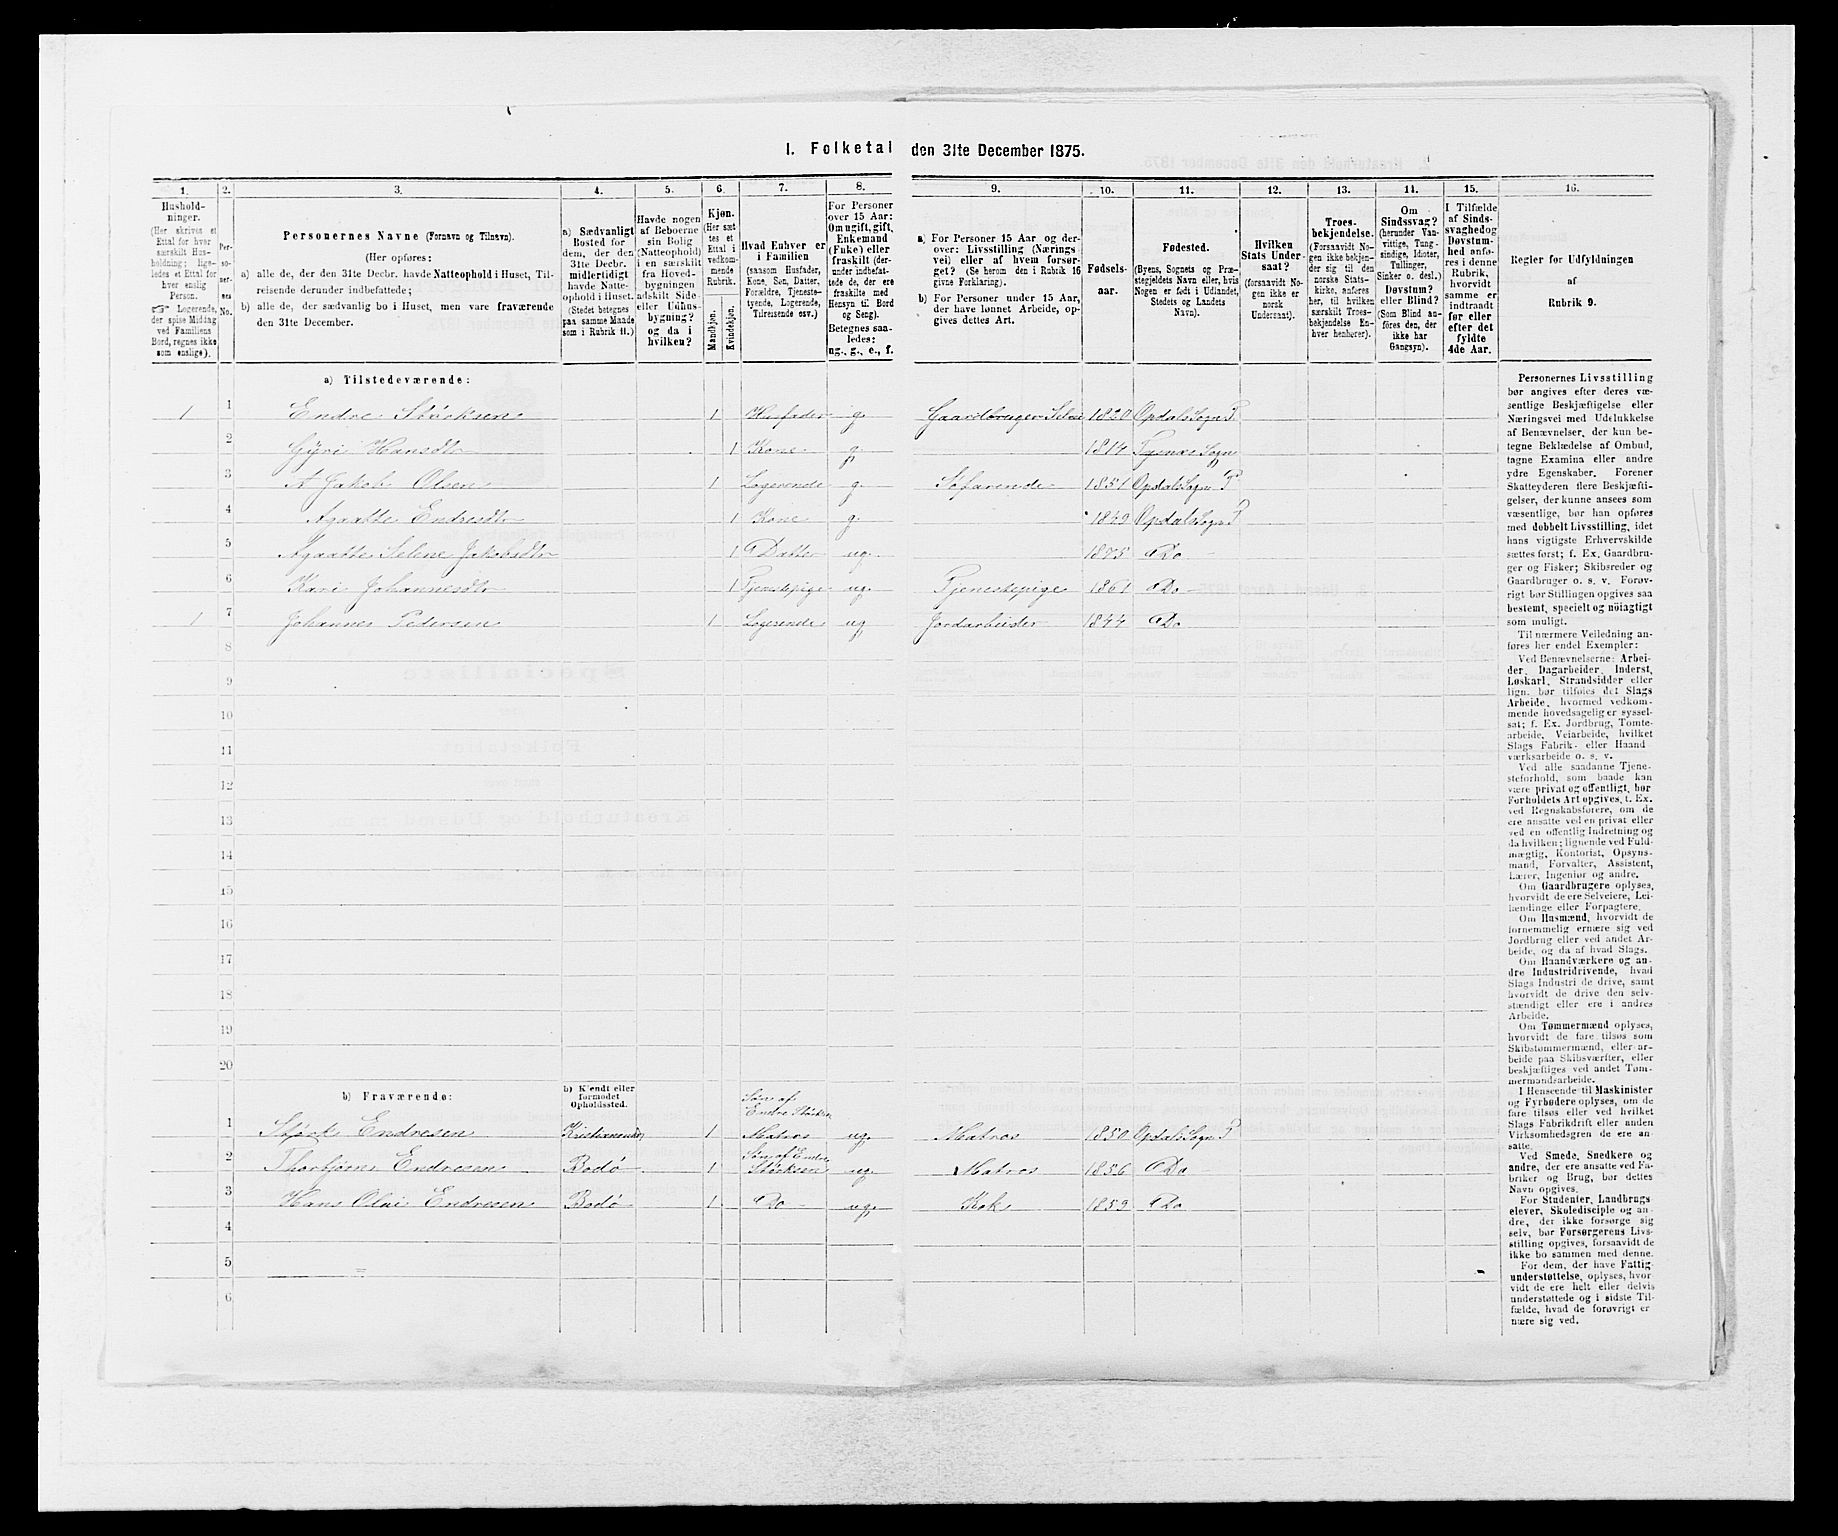 1. Folketal den 31te December 1875.
1. 2. 3. 4. 5. 6. 7. 8. 9. 10. 11. 12. 13. 14. 15. 16.
Hushold-
ninger.
(Her skrives et
Ettal for hver
særskilt Hus-
holdning; lige-
ledes et Ettal for
hver enslig
Person.
☞ Logerende,
der spise Middag
ved Familiens
Bord, regnes ikke
som enslige).
Per-
so-
ner-
nes
No.
Personernes Navne (Fornavn og Tilnavn).
(Her opføres:
a) alle de, der den 31te Decbr. havde Natteophold i Huset, Til-
reisende derunder indbefattede;
b) alle de, der sædvanlig bo i Huset, men vare fraværende
den 31te December.
a) Sædvanligt
Bosted for
dem, der den
31te Decbr.
midlertidigt
havde Natte-
ophold i Huset.
(Stedet betegnes
paa samme Maade
som i Rubrik 11.)
Havde nogen
af Beboerne
sin Bolig
(Natteophold)
i en særskilt
fra Hoved-
bygningen
adskilt Side-
eller Udhus-
bygning?
og da i
hvilken?
Kjøn.
(Her sæt
tes et
Ettal i
vedkom-
mende
Rubrik.
Mandkjøn.
Kvindekjøn.
Hvad Enhver er
i Familien
(saasom Husfader,
Kone, Søn, Datter,
Forældre, Tjeneste-
tyende, Logerende,
Tilreisende osv.)
For Personer
over 15 Aar:
Om ugift, gift,
Enkemand
(Enke) eller
fraskilt (der-
under indbefat-
tede de, der ere
fraskilte med
Hensyn til Bord
og Seng).
Betegnes saa-
ledes:
ug., g., e., f.
a) For Personer 15 Aar og der-
over: Livsstilling (Nærings
vei) eller af hvem forsør-
get? (Se herom den i Rubrik 16
givne Forklaring).
b) For Personer under 15 Aar,
der have lønnet Arbeide, op-
gives dettes Art.
Fødsels-
aar.
Fødested.
(Byens, Sognets og Præ-
stegjeldets Navn eller, hvis
Nogen er født i Udlandet,
Stedets og Landets
Navn).
Hvilken
Stats Under-
saat?
(forsaavidt No-
gen ikke er
norsk
Undersaat).
Troes-
bekjendelse.
(Forsaavidt No-
gen ikke bekjen-
der sig til den
norske Stats-
kirke, anføres
her, til hvilken
særskilt Troes-
bekjendelse En-
hver henhører).
Om
Sindssvag?
(herunder Van-
vittige, Tung-
sindige, Idioter,
Tullinger,
Sinker o. desl.)
Døvstum?
eller Blind?
(Som Blind an-
føres den, der
ikke har
Gangsyn).
I Tilfælde
af Sinds-
svaghed og
Døvstum-
hed anfø-
res i denne
Rubrik,
hvorvidt
samme er
indtraadt
før eller
efter det
fyldte
4de Aar.
Regler for Udfyldningen
af
Rubrik 9.
a) Tilstedeværende:
1 1 Endre Størksen 1 Husfader g. Gaardbruger Selvei 1820 Opdals Sogn P
2 Gÿri Hansdtr 1 Kone g. 1814 Tysnæs Sogn
3 A Jakob Olsen 1 Logerende g. Søfarende 1851 Opdals Sogn P
4 Agaatte Endresdtr 1 Kone g. 1849 Opdals Sogn P
5 Agaatte Seline Jakobsdtr 1 Datter ug. 1875 Do
6 Kari Johannesdtr 1 Tjenestepige ug. Tjenestepige 1861 Do
1 7 Johannes Pedersen 1 Logerende ug Jordarbeider 1844 Do
8
9
10
11
12
13
14
15
16
17
18
19
20
b) Fraværende:
b) Kjendt eller
formodet
Opholdssted.
Søn af
Endre Størksen
1 Størk Endresen Kristiansund 1 Matros ug. Matros 1850 Opdals Sogn P
Søn af Endre
2 Thorbjørn Endresen Bodø 1 Størksen ug. Matros 1856 Do
3 Hans Olai Endresen Bodø 1 Do ug. Kok 1859 Do
4
5
6
Personernes Livsstilling
bør angives efter deres væ-
sentlige Beskjæftigelse eller
Næringsvei med Udelukkelse
af Benævnelser, der kun be-
tegne Beklædelse af Ombud,
tagne Examina eller andre
ydre Egenskaber. Forener
Skatteyderen flere Beskjæfti-
gelser, der kunne ansees som
væsentlige, bør han opføres
med dobbelt Livsstilling, idet
hans vigtigste Erhvervskilde
sættes først; f. Ex. Gaardbru-
ger og Fisker; Skibsreder og
Gaardbruger o. s. v. Forøv-
rigt bør Stillingen opgives saa
bestemt, specielt og nøiagtigt
som muligt.
Til nærmere Veiledning an-
føres her endel Exempler:
Ved Benævnelserne: Arbei-
der, Dagarbeider, Inderst,
Løskarl, Strandsidder eller
lign. bør tilføies det Slags
Arbeide, hvormed vedkom-
mende hovedsagelig er syssel-
sat; f. Ex. Jordbrug, Tomte-
arbeide, Veiarbeide, hvilket
Slags Fabrik- eller Haand-
værksarbeide o. s. v.
Ved alle saadanne Tjene-
steforhold, som baade kan
være privat og offentligt, bør
Forholdets Art opgives, t. Ex.
ved Regnskabsførere, om de
ere ansatte ved en privat eller
ved en offentlig Indretning og
da hvilken; lignende ved Fuld-
mægtig, Kontorist, Opsyns-
mand, Forvalter, Assistent,
Lærer, Ingeniør og andre.
Om Gaardbrugere oplyses,
hvorvidt de ere Selveiere, Lei-
lændinge eller Forpagtere.
Om Husmænd, hvorvidt de
fornemmelig ernære sig ved
Jordbrug eller ved andet Ar-
beide, og da af hvad Slags.
Om Haandværkere og an-
dre Industridrivende, hvad
Slags Industri de drive, samt
hvorvidt de drive den selv-
stændigt eller ere i andres
Arbeide.
Om Tømmermænd oplyses,
hvorvidt de fare tilsøs som
Skibstømmermænd, eller ar-
beide paa Skibsværfter, eller
beskjæftiges ved andet Tøm-
mermandsarbeide.
I Henseende til Maskinister
og Fyrbødere oplyses, om de
fare tilsøs eller ved hvilket
Slags Fabrikdrift eller anden
Virksomhedsgren de ere an-
satte.
Ved Smede, Snedkere og
andre, der ere ansatte ved Fa-
briker og Brug, bør dettes
Navn opgives.
For Studenter, Landbrugs-
elever, Skoledisciple og an-
dre, der ikke forsørge sig
selv, bør Forsørgerens Livs-
stilling opgives, forsaavidt de
ikke bo sammen med denne.
For dem, der have Fattig-
understøttelse, oplyses, hvor-
vidt de ere helt eller delvis
understøttede og i sidste Til-
fælde, hvad de forøvrigt er
nære sig ved.